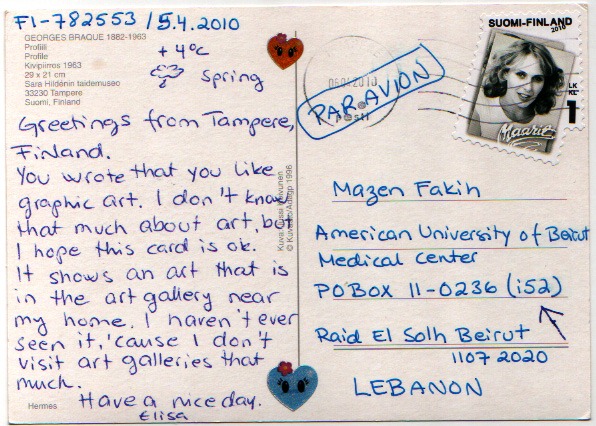 FI-782553 / 5.4.2010
GEORGES BRAQUE 1882-1963
Profiili
Profile
Kivipiirros 1963
29 x 21 cm
Sara Hildénin taidemuseo
33230 Tampere
Suomi, Finland
+4°C
spring
Greetings from Tampere,
Finland.
You wrote that you like
graphic art. I don't know
that much about art, but
I hope this card is ok.
It shows an art that is
in the art gallery near
my home. I haven't ever
seen it, 'cause I don't
visit art galleries that
much.
Have a nice day.
Elisa
Hermes
© Kuvasto/Adagp 1996
PAR AVION
posti
SUOMI-FINLAND
2010
LK
KL
1
Maarit
Mazen Fakih
American University of Beirut
Medical Center
PO Box 11-0236 (i52)
Raid El Solh Beirut
1107 2020
LEBANON